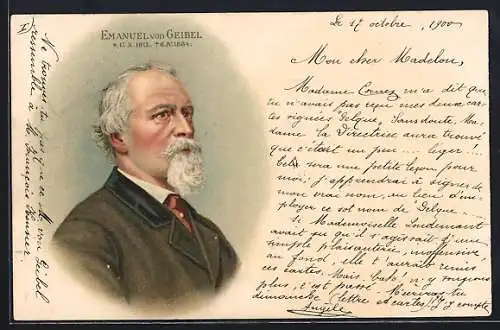 EMANUEL von GEIBEL
* 17. X. 1815. † 6. IV. 1884.
Le 17 octobre, 1900
Mon cher Madelon,
Madame m'a dit que
tu n'avais pas reçu mes deux car-
tes signées "Gelque". Sans doute, Ma-
dame la Directrice aura trouvé
que c'était un peu .... léger!..
Cela sera une petite leçon pour
moi; j'apprendrai à signer de
mon vrai nom, au lieu d'em-
ployer ce sot nom de "Gelque".
Si Mademoiselle
avait su qu'il s'agissait d'une
simple plaisanterie, inoffensive
au fond, elle t'aurait remis
ces cartes. Mais, bah! n'y songeons
plus, c'est passé. M'écriras-tu
dimanche (lettre et cartes)? J'y compte,
Angèle
Ne trouves-tu pas que ce M. von Geibel
ressemble à M. François